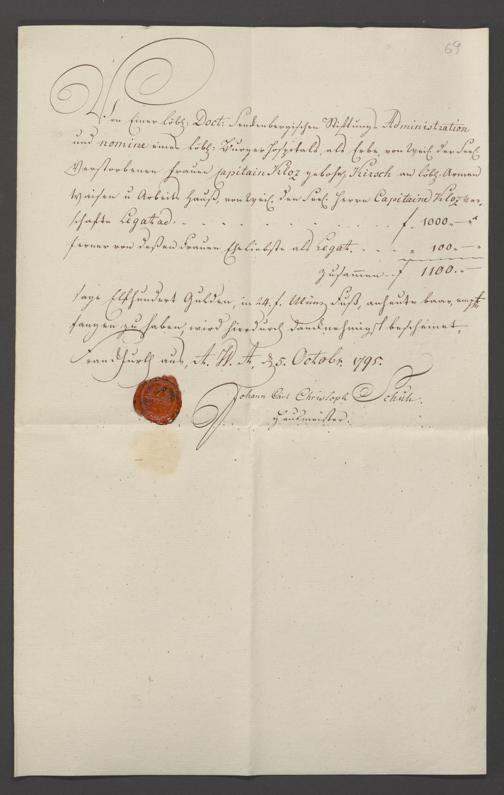 69
Von Einer löbl: Doct: Senckenbergischen Stiftungs Administration
und nomine eines löbl: Bürger Hospitals, als Erbe von weil. der Seel.
Verstorbenen Frauen Capitain Kloz gebohr. Hirsch an löbl. Armen
Waisen u Arbeits Hauß, von weil. den Seel. Herrn Capitaine Kloz ver-
schafte Legatad . . . . . . . . . . . . f. 1000.—
ferner von deßen Frauen Eheliebste als Legat. . . . " 100.—
zusammen f 1100.—
sage Elfhundert Gulden, in 24. f. Münz Fuß, anheute baar emp-
fangen zu haben, wird hierdurch dancknehmigst bescheinet,
Franckfurth aus, A. W. A, d. 5. Octobr. 1795.
Johann Carl Christoph Schüz.
Hausmeister.